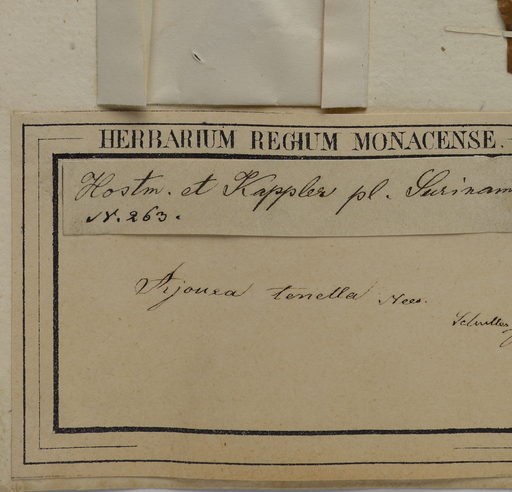 HERBARIUM REGIUM MONACENSE.
Hostm. et Kappler pl. Surinam
N. 263.
Ajouea tenella Nees.